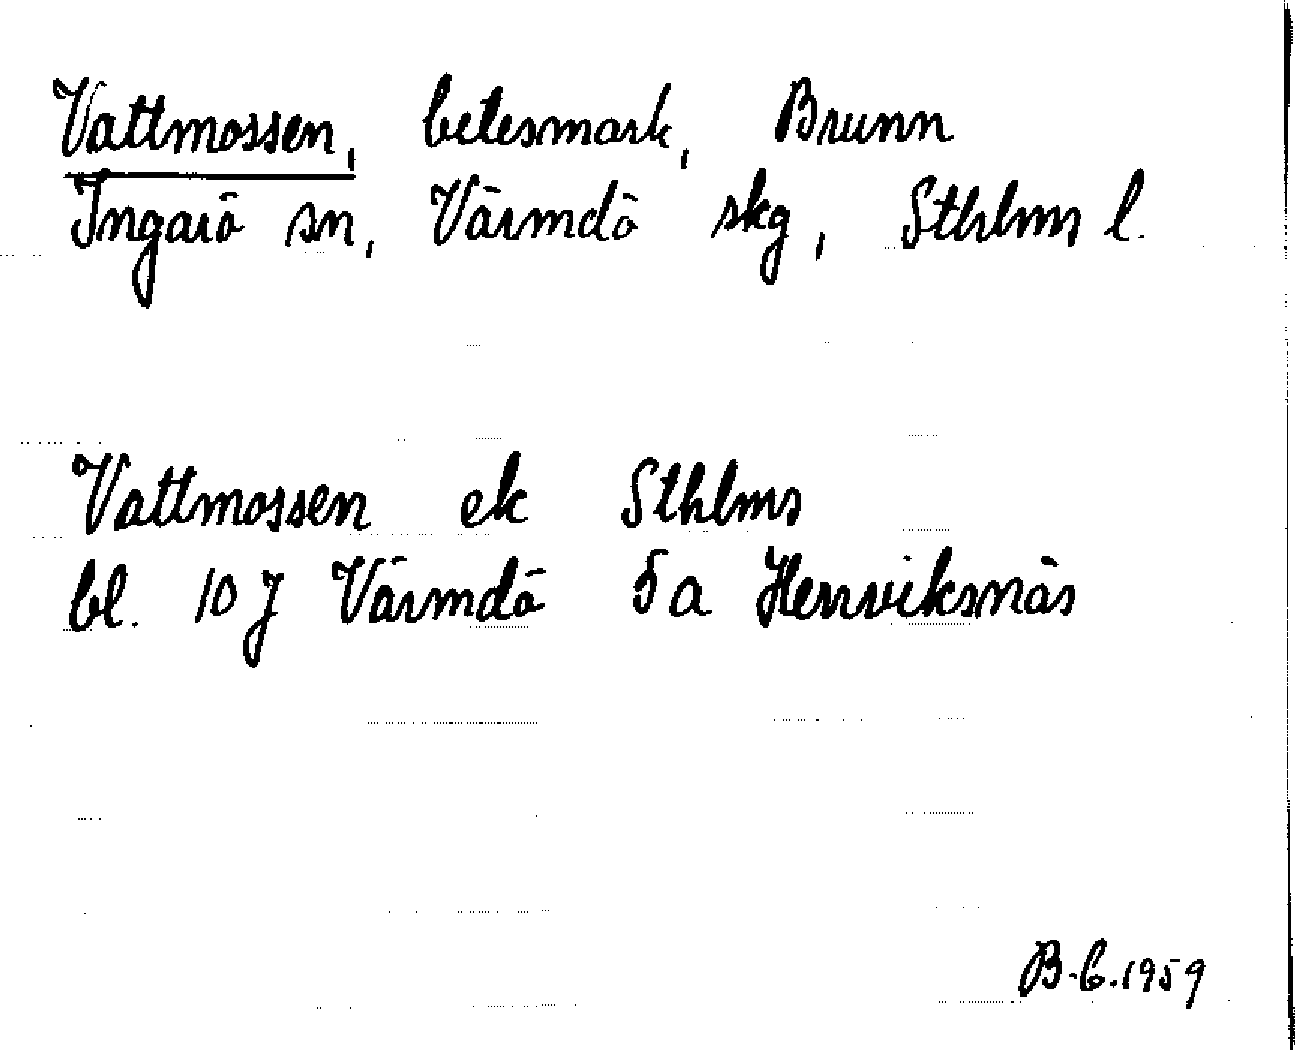 Vattmossen, betesmark, Brunn
Ingarö sn, Värmdö skg, Sthlms l.
Vattmossen ek Sthlms
bl. 10 J Värmdö 5a Herrviksnäs
B-C. 1959